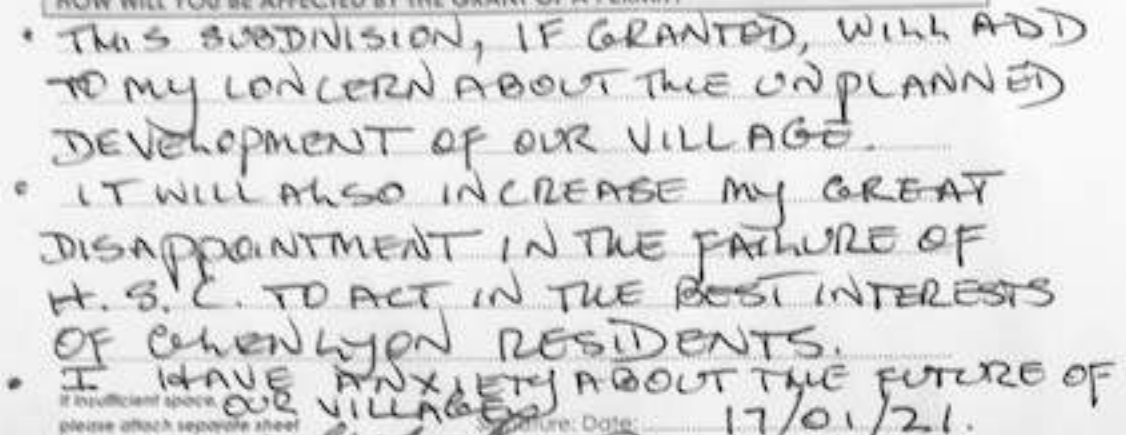 HOW WILL YOU BE AFFECTED BY THE GRANT OF A PERMIT
• THIS SUBDIVISION, IF GRANTED, WILL ADD
TO MY CONCERN ABOUT THE UNPLANNED
DEVELOPMENT OF OUR VILLAGE.
• IT WILL ALSO INCREASE MY GREAT
DISAPPOINTMENT IN THE FAILURE OF
H. S. C. TO ACT IN THE BEST INTERESTS
OF GLENLYON RESIDENTS.
• I HAVE ANXIETY ABOUT THE FUTURE OF
OUR VILLAGE
If insufficient space,
please attach separate sheet
Signature: Date: 17/01/21.